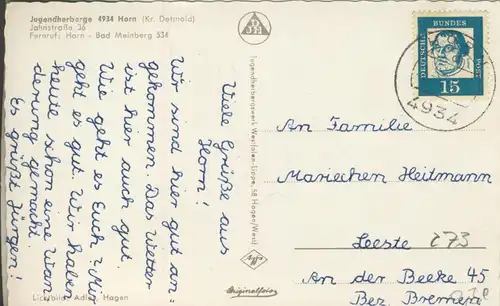 Jugendherberge 4934 Horn (Kr. Detmold)
Jahnstraße 36
Fernruf: Horn - Bad Meinberg 534
Viele Grüße aus
Horn!
Wir sind hier gut an-
gekommen. Das Wetter
ist hier auch gut.
Wie geht es Euch? Mir
geht es gut. Wir haben
heute schon eine Wan-
derung gemacht.
Es grüßt Jürgen!
Lichtbild: Adler, Hagen
DJH
Jugendherbergswerk Westfalen-Lippe, 58 Hagen/Westf
Agfa
Originalfoto
DEUTSCHE
BUNDES
POST
15
4934
An Familie
Mariechen Heitmann
Leeste 273
An der Beeke 45
Bez. Bremen